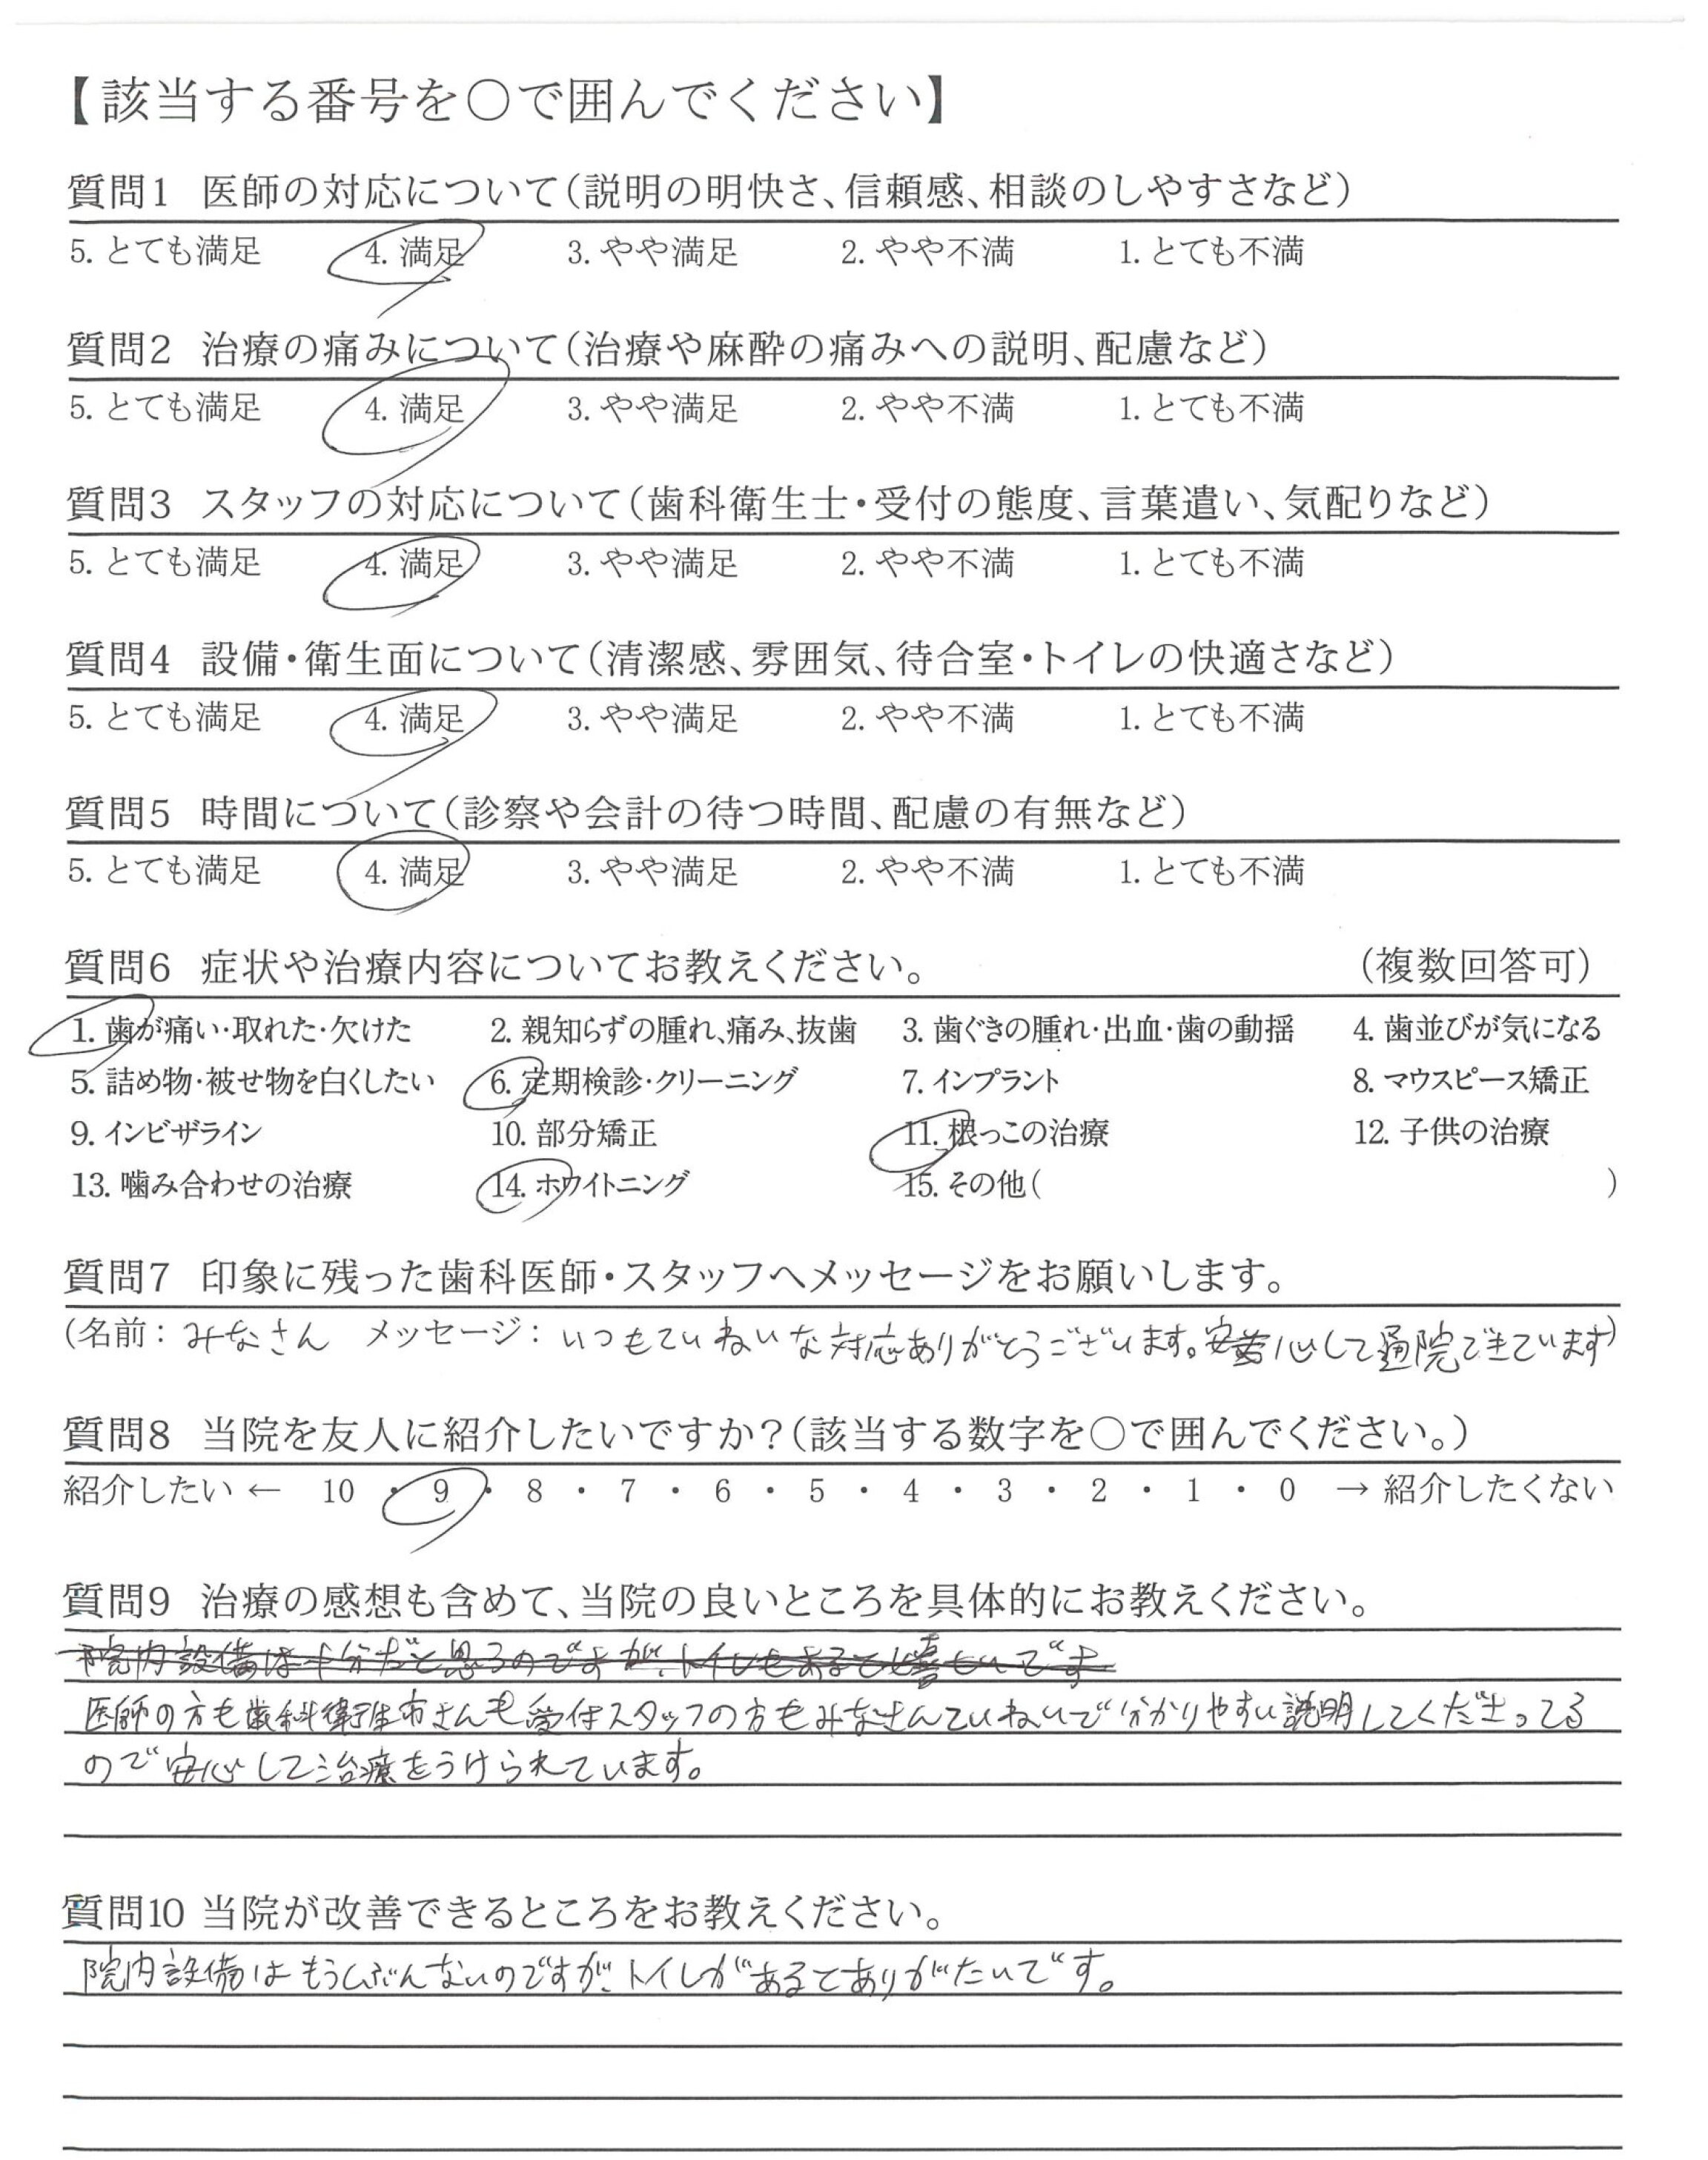 【該当する番号を○で囲んでください】
質問1 医師の対応について(説明の明快さ、信頼感、相談のしやすさなど)
5. とても満足 4. 満足 3. やや満足 2. やや不満 1. とても不満
質問2 治療の痛みについて(治療や麻酔の痛みへの説明、配慮など)
5. とても満足 4. 満足 3. やや満足 2. やや不満 1. とても不満
質問3 スタッフの対応について(歯科衛生士・受付の態度、言葉遣い、気配りなど)
5. とても満足 4. 満足 3. やや満足 2. やや不満 1. とても不満
質問4 設備・衛生面について(清潔感、雰囲気、待合室・トイレの快適さなど)
5. とても満足 4. 満足 3. やや満足 2. やや不満 1. とても不満
質問5 時間について(診察や会計の待つ時間、配慮の有無など)
5. とても満足 4. 満足 3. やや満足 2. やや不満 1. とても不満
質問6 症状や治療内容についてお教えください。 (複数回答可)
1. 歯が痛い・取れた・欠けた 2. 親知らずの腫れ、痛み、抜歯 3. 歯ぐきの腫れ・出血・歯の動揺 4. 歯並びが気になる
5. 詰め物・被せ物を白くしたい 6. 定期検診・クリーニング 7. インプラント 8. マウスピース矯正
9. インビザライン 10. 部分矯正 11. 根っこの治療 12. 子供の治療
13. 噛み合わせの治療 14. ホワイトニング 15. その他( )
質問7 印象に残った歯科医師・スタッフへメッセージをお願いします。
(名前：みなさん メッセージ：いつもていねいな対応ありがとうございます。安心して通院できています)
質問8 当院を友人に紹介したいですか？(該当する数字を○で囲んでください。)
紹介したい ← 10 ・ 9 ・ 8 ・ 7 ・ 6 ・ 5 ・ 4 ・ 3 ・ 2 ・ 1 ・ 0 → 紹介したくない
質問9 治療の感想も含めて、当院の良いところを具体的にお教えください。
院内設備は十分だと思うのですが、トイレもあると嬉しいです
医師の方も歯科衛生布さんも受付スタッフの方もみなさんていねいで分かりやすい説明してくださってる
ので安心して治療をうけられています。
質問10 当院が改善できるところをお教えください。
院内設備はもうしぶんないのですが、トイレがあるとありがたいです。